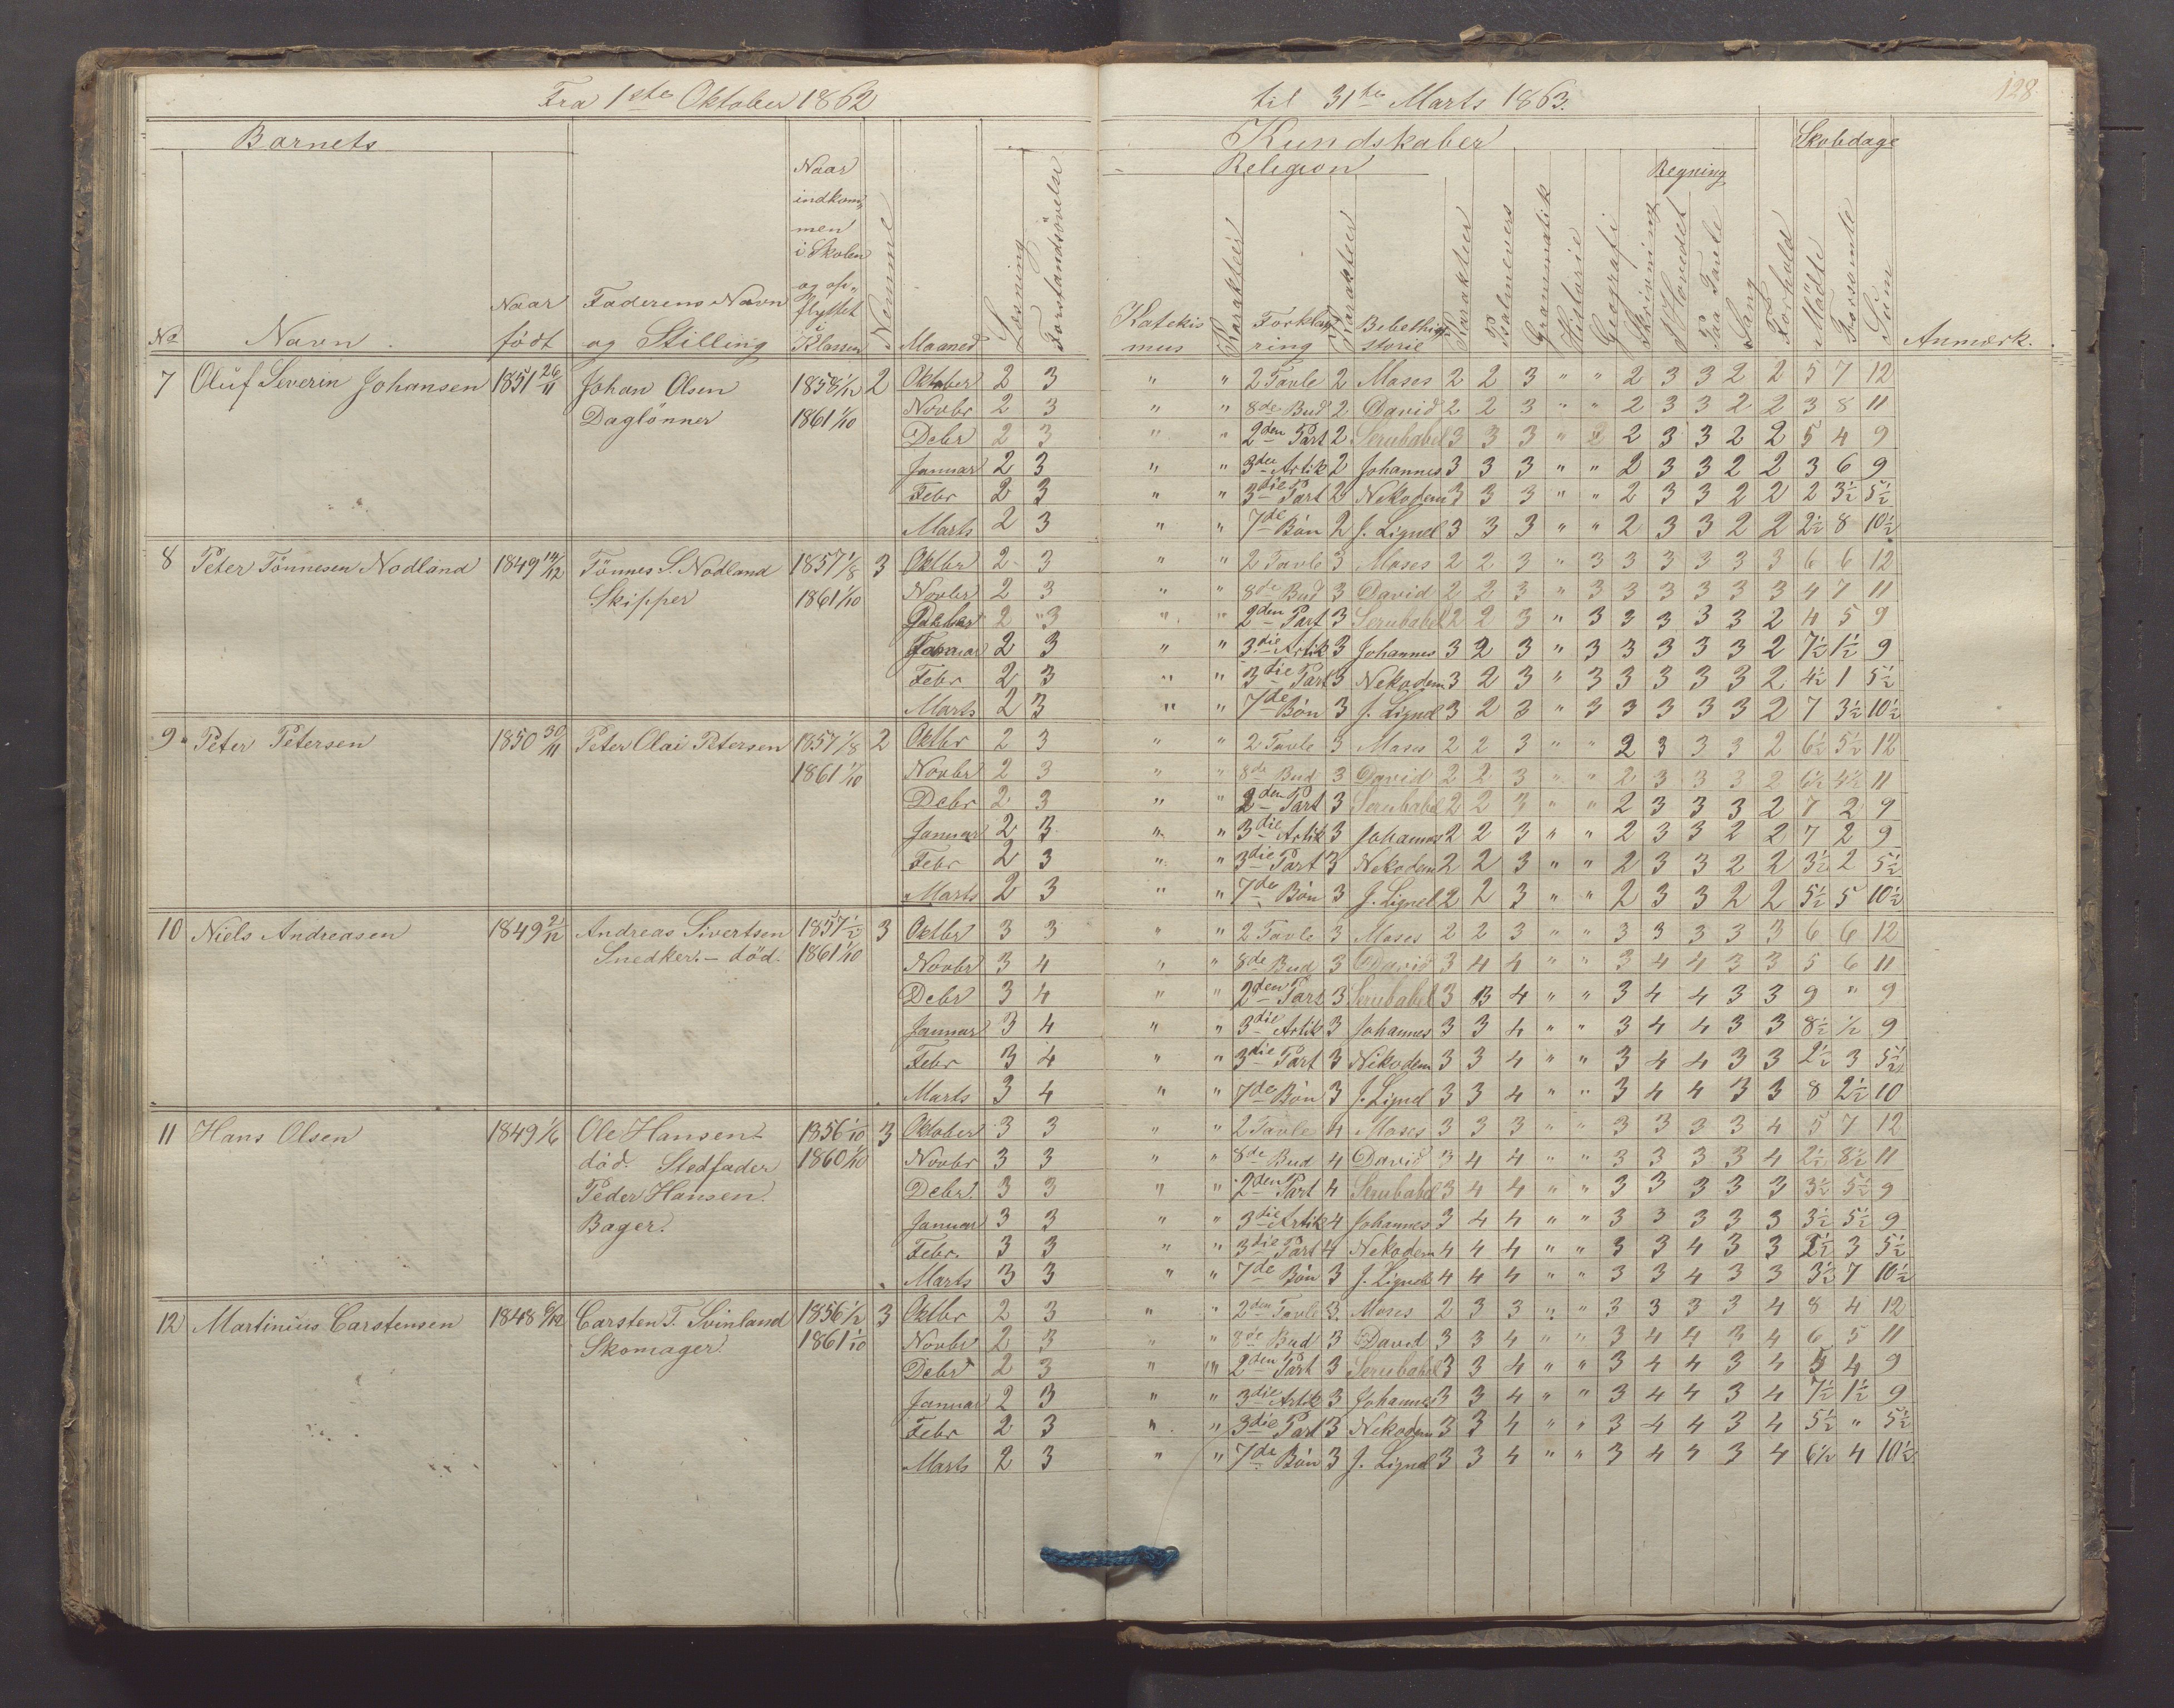 Fra 1ste Oktober 1862 til 31te Marts 1863. 128
Barnets Kundskaber Skoledage
Religion Regning
No Navn. Naar født Faderens Navn og Stilling Naar indkommen i Skolen og opflyttet i Klassen Nummer Maaned Læsning Forstandsövelse Katekismus Karakter Forklaring Karakter Bibelhistorie Karakter Psalmevers Grammatik Historie Geografi Skrivning I Hovedet Paa Tavle Sang Forhold Mødte Forsømte Sum Anmærk.
7 Oluf Severin Johansen 1851 26/11 Johan Olsen 1858 1/12 2 Oktober 2 3 " " 2 Tavle 2 Moses 2 2 3 " " 2 3 3 2 2 5 7 12
Daglönner 1861 1/10 Novbr 2 3 " " 8de Bud 2 David 2 2 3 " " 2 3 3 2 2 3 8 11
Debr 2 3 " " 2den Part 2 Serubabel 3 3 3 " 2 3 3 2 2 5 4 9
Januar 2 3 " " 3die Artik 2 Johannes 3 3 3 " " 2 3 3 2 2 3 6 9
Febr 2 3 " " 3die Part 2 Nekodem 3 3 3 " " 2 3 3 2 2 2 3½ 5½
Marts 2 3 " " 7de Bön 2 J. Lignel 3 3 3 " " 2 3 3 2 2 2½ 8 10½
8 Peter Tönnesen Nodland 1849 14/12 Tönnes S. Nodland 1857 1/8 3 Oktbr 2 3 " " 2 Tavle 3 Moses 2 2 3 " 3 3 3 3 3 3 6 6 12
Skipper 1861 1/10 Novbr 2 3 " " 8de Bud 3 David 2 2 3 " 3 3 3 3 3 3 4 7 11
2 3 " " 2den Part 3 Serubabel 2 2 3 " 3 3 3 3 3 2 4 5 9
Januar 2 3 " " 3die Artik 3 Johannes 3 2 3 " 3 3 3 3 3 2 7½ 1½ 9
Febr 2 3 " " 3die Part 3 Nekodem 3 2 3 " 3 3 3 3 3 2 4½ 1 5½
Marts 2 3 " " 7de Bön 3 J. Lignel 3 2 3 " 3 3 3 3 3 2 7 3½ 10½
9 Peter Petersen 1850 30/11 Peter Olai Petersen 1857 1/8 2 Oktbr 2 3 " " 2 Tavle 3 Moses 2 2 3 " " 2 3 3 3 2 6½ 5½ 12
1861 1/10 Novbr 2 3 " " 8de Bud 3 David 2 2 3 " " 2 3 3 3 2 6½ 4½ 11
Debr 2 3 " " 2den Part 3 Serubabel 2 2 3 " " 2 3 3 3 2 7 2 9
Januar 2 3 " " 3die Artik 3 Johannes 2 2 3 " " 2 3 3 2 2 7 2 9
Febr 2 3 " " 3die Part 3 Nekodem 2 2 3 " " 2 3 3 2 2 3½ 2 5½
Marts 2 3 " " 7de Bön 3 J. Lignel 2 2 3 " " 2 3 3 2 2 5½ 5 10½
10 Niels Andreasen 1849 2/12 Andreas Sivertsen 1857 1/2 3 Oktbr 3 3 " " 2 Tavle 3 Moses 2 2 3 " " 3 3 3 3 3 6 6 12
Snedker. - död. 1861 1/10 Novbr 3 4 " " 8de Bud 3 David 3 4 4 " " 3 4 4 3 3 5 6 11
Debr 3 4 " " 2den Part 3 Serubabel 3 3 4 " " 3 4 4 3 3 9 " 9
Januar 3 4 " " 3die Artik 3 Johannes 3 3 4 " " 3 4 4 3 3 8½ ½ 9
Febr 3 4 " " 3die Part 3 Nikodem 3 3 4 " " 3 4 4 3 3 2½ 3 5½
Marts 3 4 " " 7de Bön 3 J. Lignel 3 3 4 " " 3 4 4 3 3 8 2½ 10
11 Hans Olsen 1849 1/6 Ole Hansen 1856 1/10 3 Oktober 3 3 " " 2 Tavle 4 Moses 3 3 3 " " 3 3 3 3 4 5 7 12
död. Stedfader 1860 1/10 Novbr 3 3 " " 8de Bud 4 David 3 4 4 " " 3 3 3 3 4 2½ 8½ 11
Peder Hansen. Debr. 3 3 " " 2den Part 4 Serubabel 3 4 4 " " 3 3 3 3 3 3½ 5½ 9
Bager. Januar 3 3 " " 3die Artik 4 Johannes 3 4 4 " " 3 3 3 3 3 3½ 5½ 9
Febr. 3 3 " " 3die Part 4 Nekodem 4 4 4 " " 3 3 4 3 3 2½ 3 5½
Marts 3 3 " " 7de Bön 3 J. Lignel 4 4 4 " " 3 3 4 3 3 3½ 7 10½
12 Martinius Carstensen 1848 Carsten T. Svinland 1856 1/2 3 Oktbr 2 3 " " 2den Tavle 3. Moses 2 3 3 " " 3 3 3 3 4 8 4 12
Skomager. 1861 1/10 Novbr 2 3 " " 8de Bud 3 David 3 3 4 " " 3 4 4 3 4 6 5 11
Debr 2 3 " " 2den Part 3 Serubabel 3 3 4 " " 3 4 4 3 4 5 4 9
Januar 2 3 " " 3die Artik 3 Johannes 3 3 4 " " 3 4 4 3 4 7½ 1½ 9
Febr 2 3 " " 3die Part 3 Nekodem 3 3 4 " " 3 4 4 3 4 5½ " 5½
Marts 2 3 " " 7de Bön 3 J. Lignel 3 3 4 " " 3 4 4 3 4 6½ 4 10½